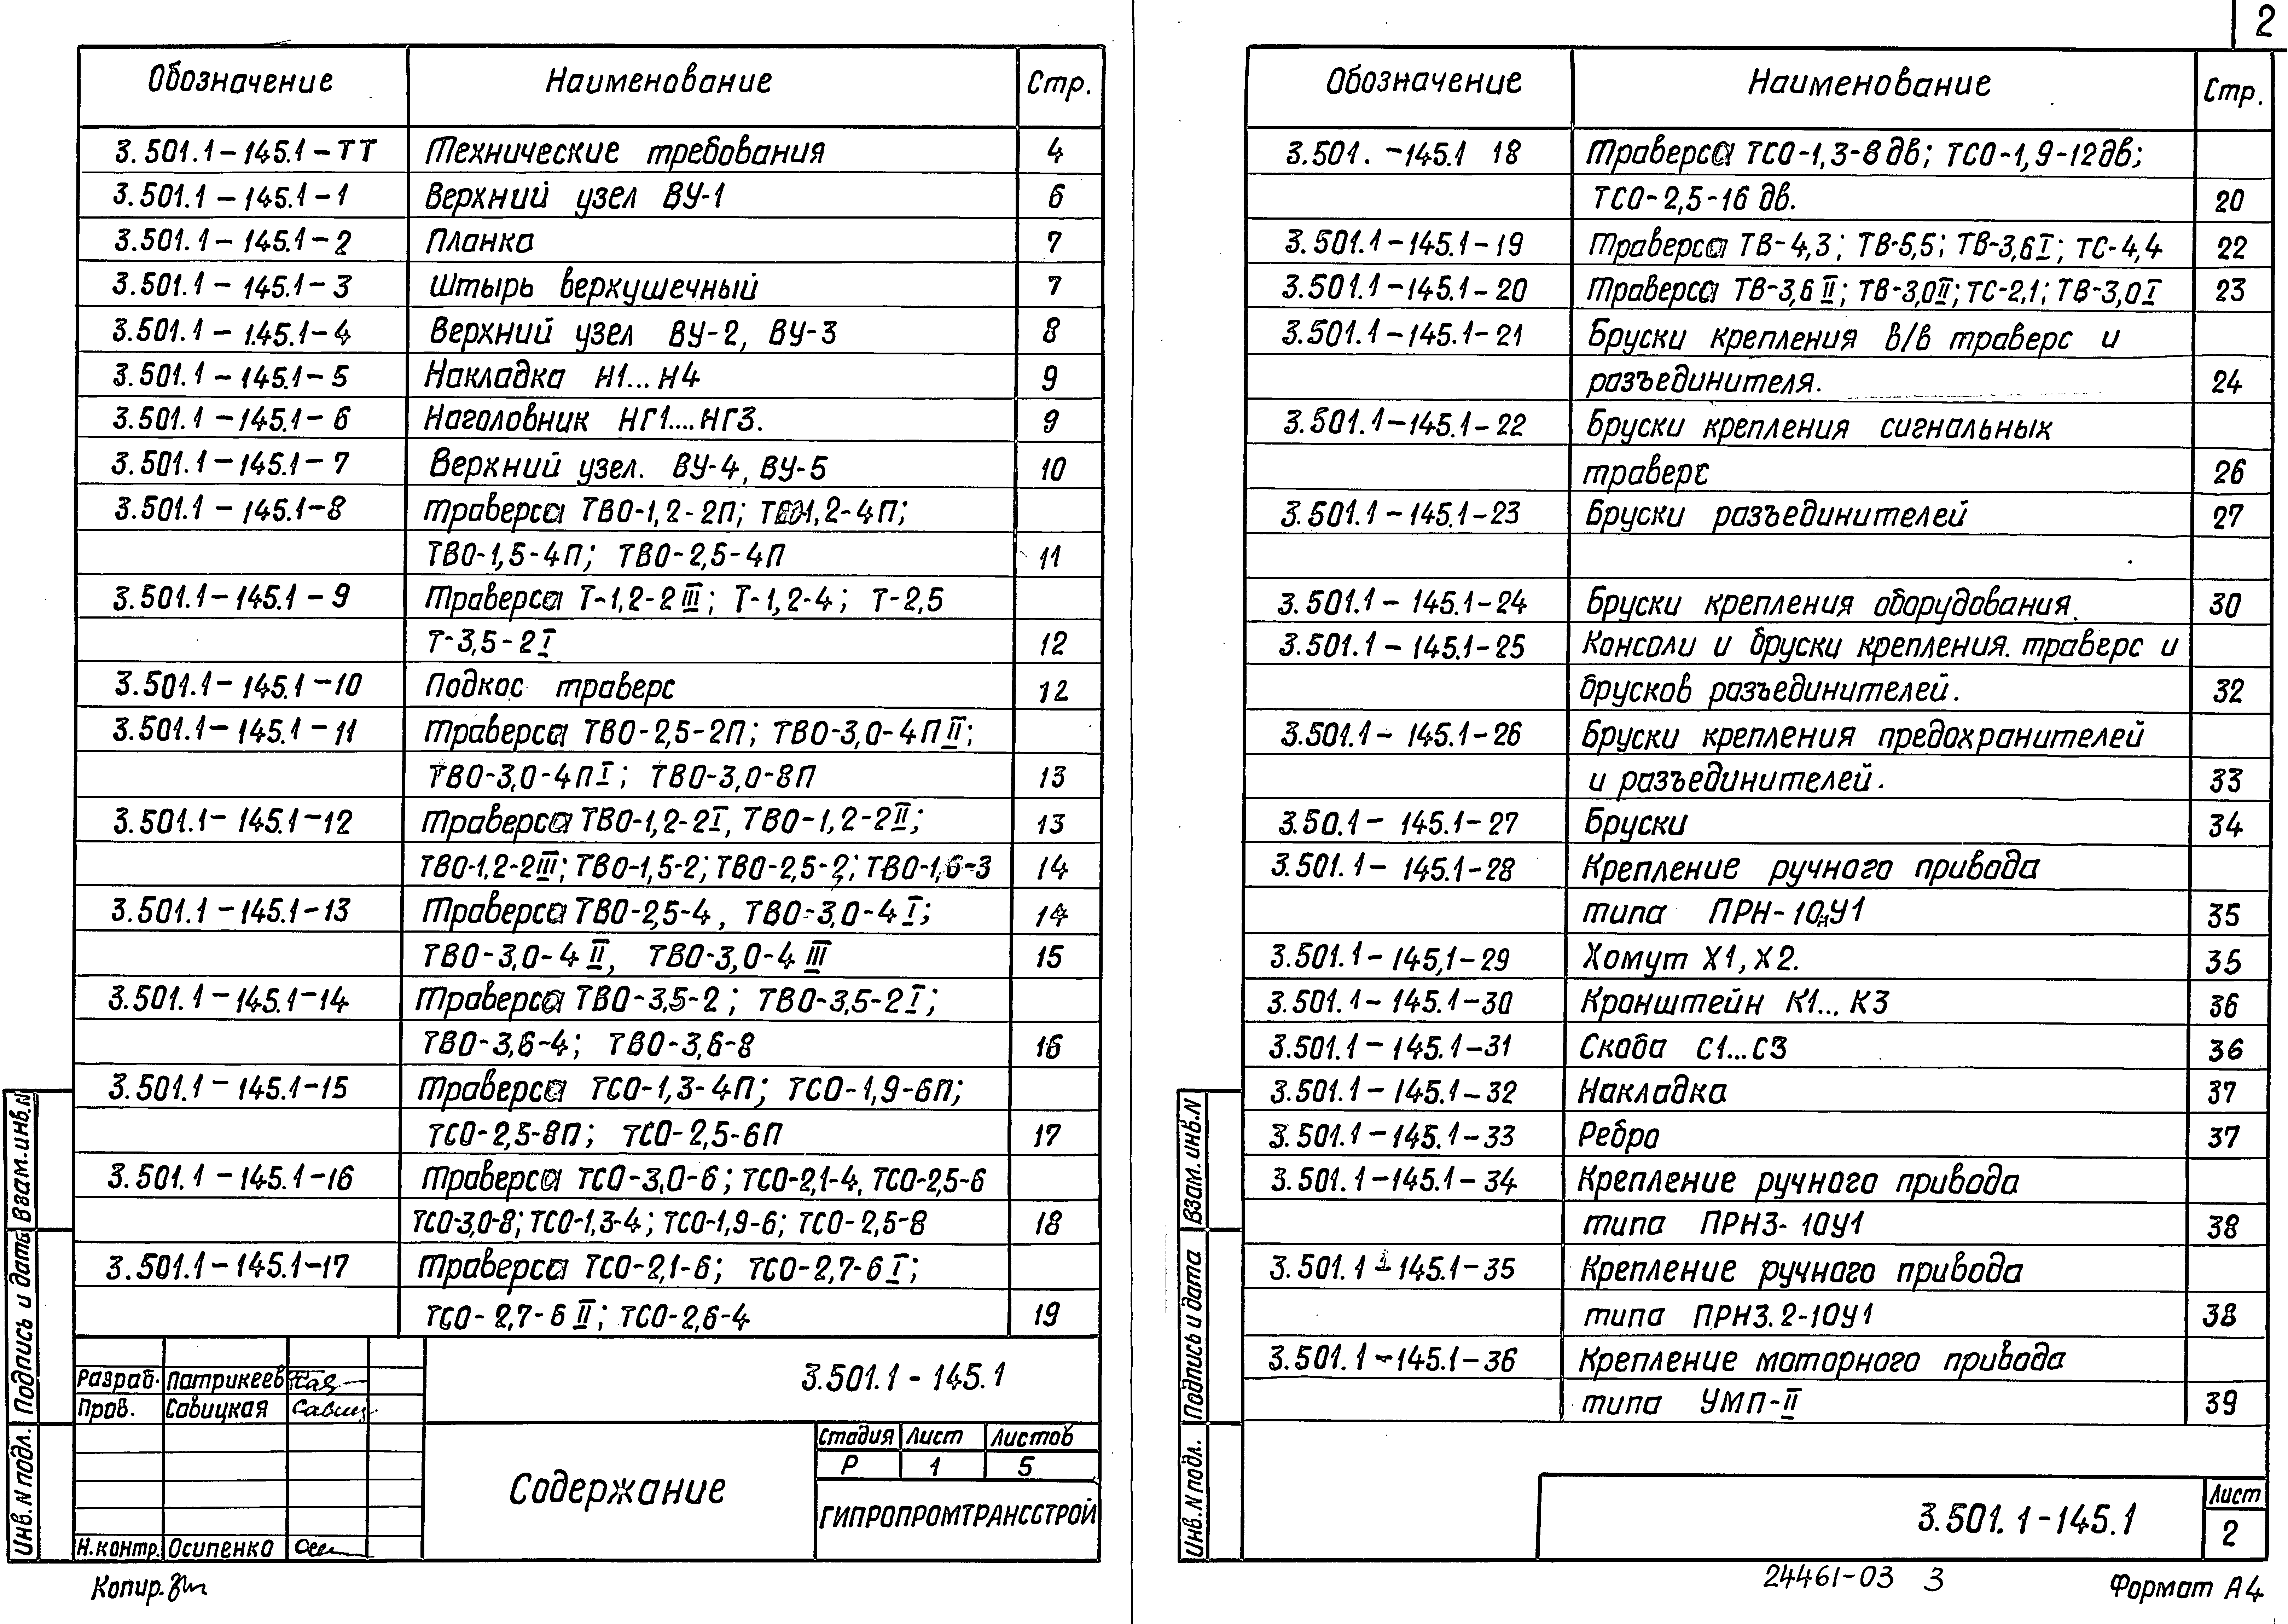 2
Обозначение Наименование Стр.
3.501.1-145.1-ТТ Технические требования 4
3.501.1-145.1-1 Верхний узел ВУ-1 6
3.501.1-145.1-2 Планка 7
3.501.1-145.1-3 Штырь верхушечный 7
3.501.1-145.1-4 Верхний узел ВУ-2, ВУ-3 8
3.501.1-145.1-5 Накладка Н1...Н4 9
3.501.1-145.1-6 Наголовник НГ1....НГ3. 9
3.501.1-145.1-7 Верхний узел. ВУ-4, ВУ-5 10
3.501.1-145.1-8 Траверса ТВО-1,2-2П; ТВО-1,2-4П;
ТВО-1,5-4П; ТВО-2,5-4П 11
3.501.1-145.1-9 Траверса Т-1,2-2III; Т-1,2-4; Т-2,5
Т-3,5-2I 12
3.501.1-145.1-10 Подкос траверс 12
3.501.1-145.1-11 Траверса ТВО-2,5-2П; ТВО-3,0-4ПII;
ТВО-3,0-4ПI; ТВО-3,0-8П 13
3.501.1-145.1-12 Траверса ТВО-1,2-2I, ТВО-1,2-2II; 13
ТВО-1,2-2III; ТВО-1,5-2; ТВО-2,5-2; ТВО-1,6-3 14
3.501.1-145.1-13 Траверса ТВО-2,5-4, ТВО-3,0-4I; 14
ТВО-3,0-4II, ТВО-3,0-4III 15
3.501.1-145.1-14 Траверса ТВО-3,5-2; ТВО-3,5-2I;
ТВО-3,6-4; ТВО-3,6-8 16
3.501.1-145.1-15 Траверса ТСО-1,3-4П; ТСО-1,9-6П;
ТСО-2,5-8П; ТСО-2,5-6П 17
3.501.1-145.1-16 Траверса ТСО-3,0-6; ТСО-2,1-4, ТСО-2,5-6
ТСО-3,0-8; ТСО-1,3-4; ТСО-1,9-6; ТСО-2,5-8 18
3.501.1-145.1-17 Траверса ТСО-2,1-6; ТСО-2,7-6I;
ТСО-2,7-6II; ТСО-2,6-4 19
Взам.инв.N
Подпись и дата
Инв.N подл.
3.501.1-145.1
Разраб. Патрикеев
Пров. Савицкая Савиц
Содержание
Стадия Лист Листов
Р 1 5
ГИПРОПРОМТРАНССТРОЙ
Н.контр. Осипенко
Копир.
Обозначение Наименование Стр.
3.501. -145.1 18 Траверса ТСО-1,3-8дв; ТСО-1,9-12дв;
ТСО-2,5-16 дв. 20
3.501.1-145.1-19 Траверса ТВ-4,3; ТВ-5,5; ТВ-3,6I; ТС-4,4 22
3.501.1-145.1-20 Траверса ТВ-3,6II; ТВ-3,0II; ТС-2,1; ТВ-3,0I 23
3.501.1-145.1-21 Бруски крепления в/в траверс и
разъединителя. 24
3.501.1-145.1-22 Бруски крепления сигнальных
траверс 26
3.501.1-145.1-23 Бруски разъединителей 27
3.501.1-145.1-24 Бруски крепления оборудования. 30
3.501.1-145.1-25 Консоли и бруски крепления. траверс и
брусков разъединителей. 32
3.501.1-145.1-26 Бруски крепления предохранителей
и разъединителей. 33
3.50.1-145.1-27 Бруски 34
3.501.1-145.1-28 Крепление ручного привода
типа ПРН-10мУ1 35
3.501.1-145,1-29 Хомут Х1, Х2. 35
3.501.1-145.1-30 Кронштейн К1...К3 36
3.501.1-145.1-31 Скоба С1...С3 36
3.501.1-145.1-32 Накладка 37
3.501.1-145.1-33 Ребро 37
3.501.1-145.1-34 Крепление ручного привода
типа ПРНЗ-10У1 38
3.501.1-145.1-35 Крепление ручного привода
типа ПРНЗ.2-10У1 38
3.501.1-145.1-36 Крепление моторного привода
типа УМП-II 39
Взам.инв.N
Подпись и дата
Инв.N подл.
3.501.1-145.1
Лист
2
24461-03 3
Формат А4